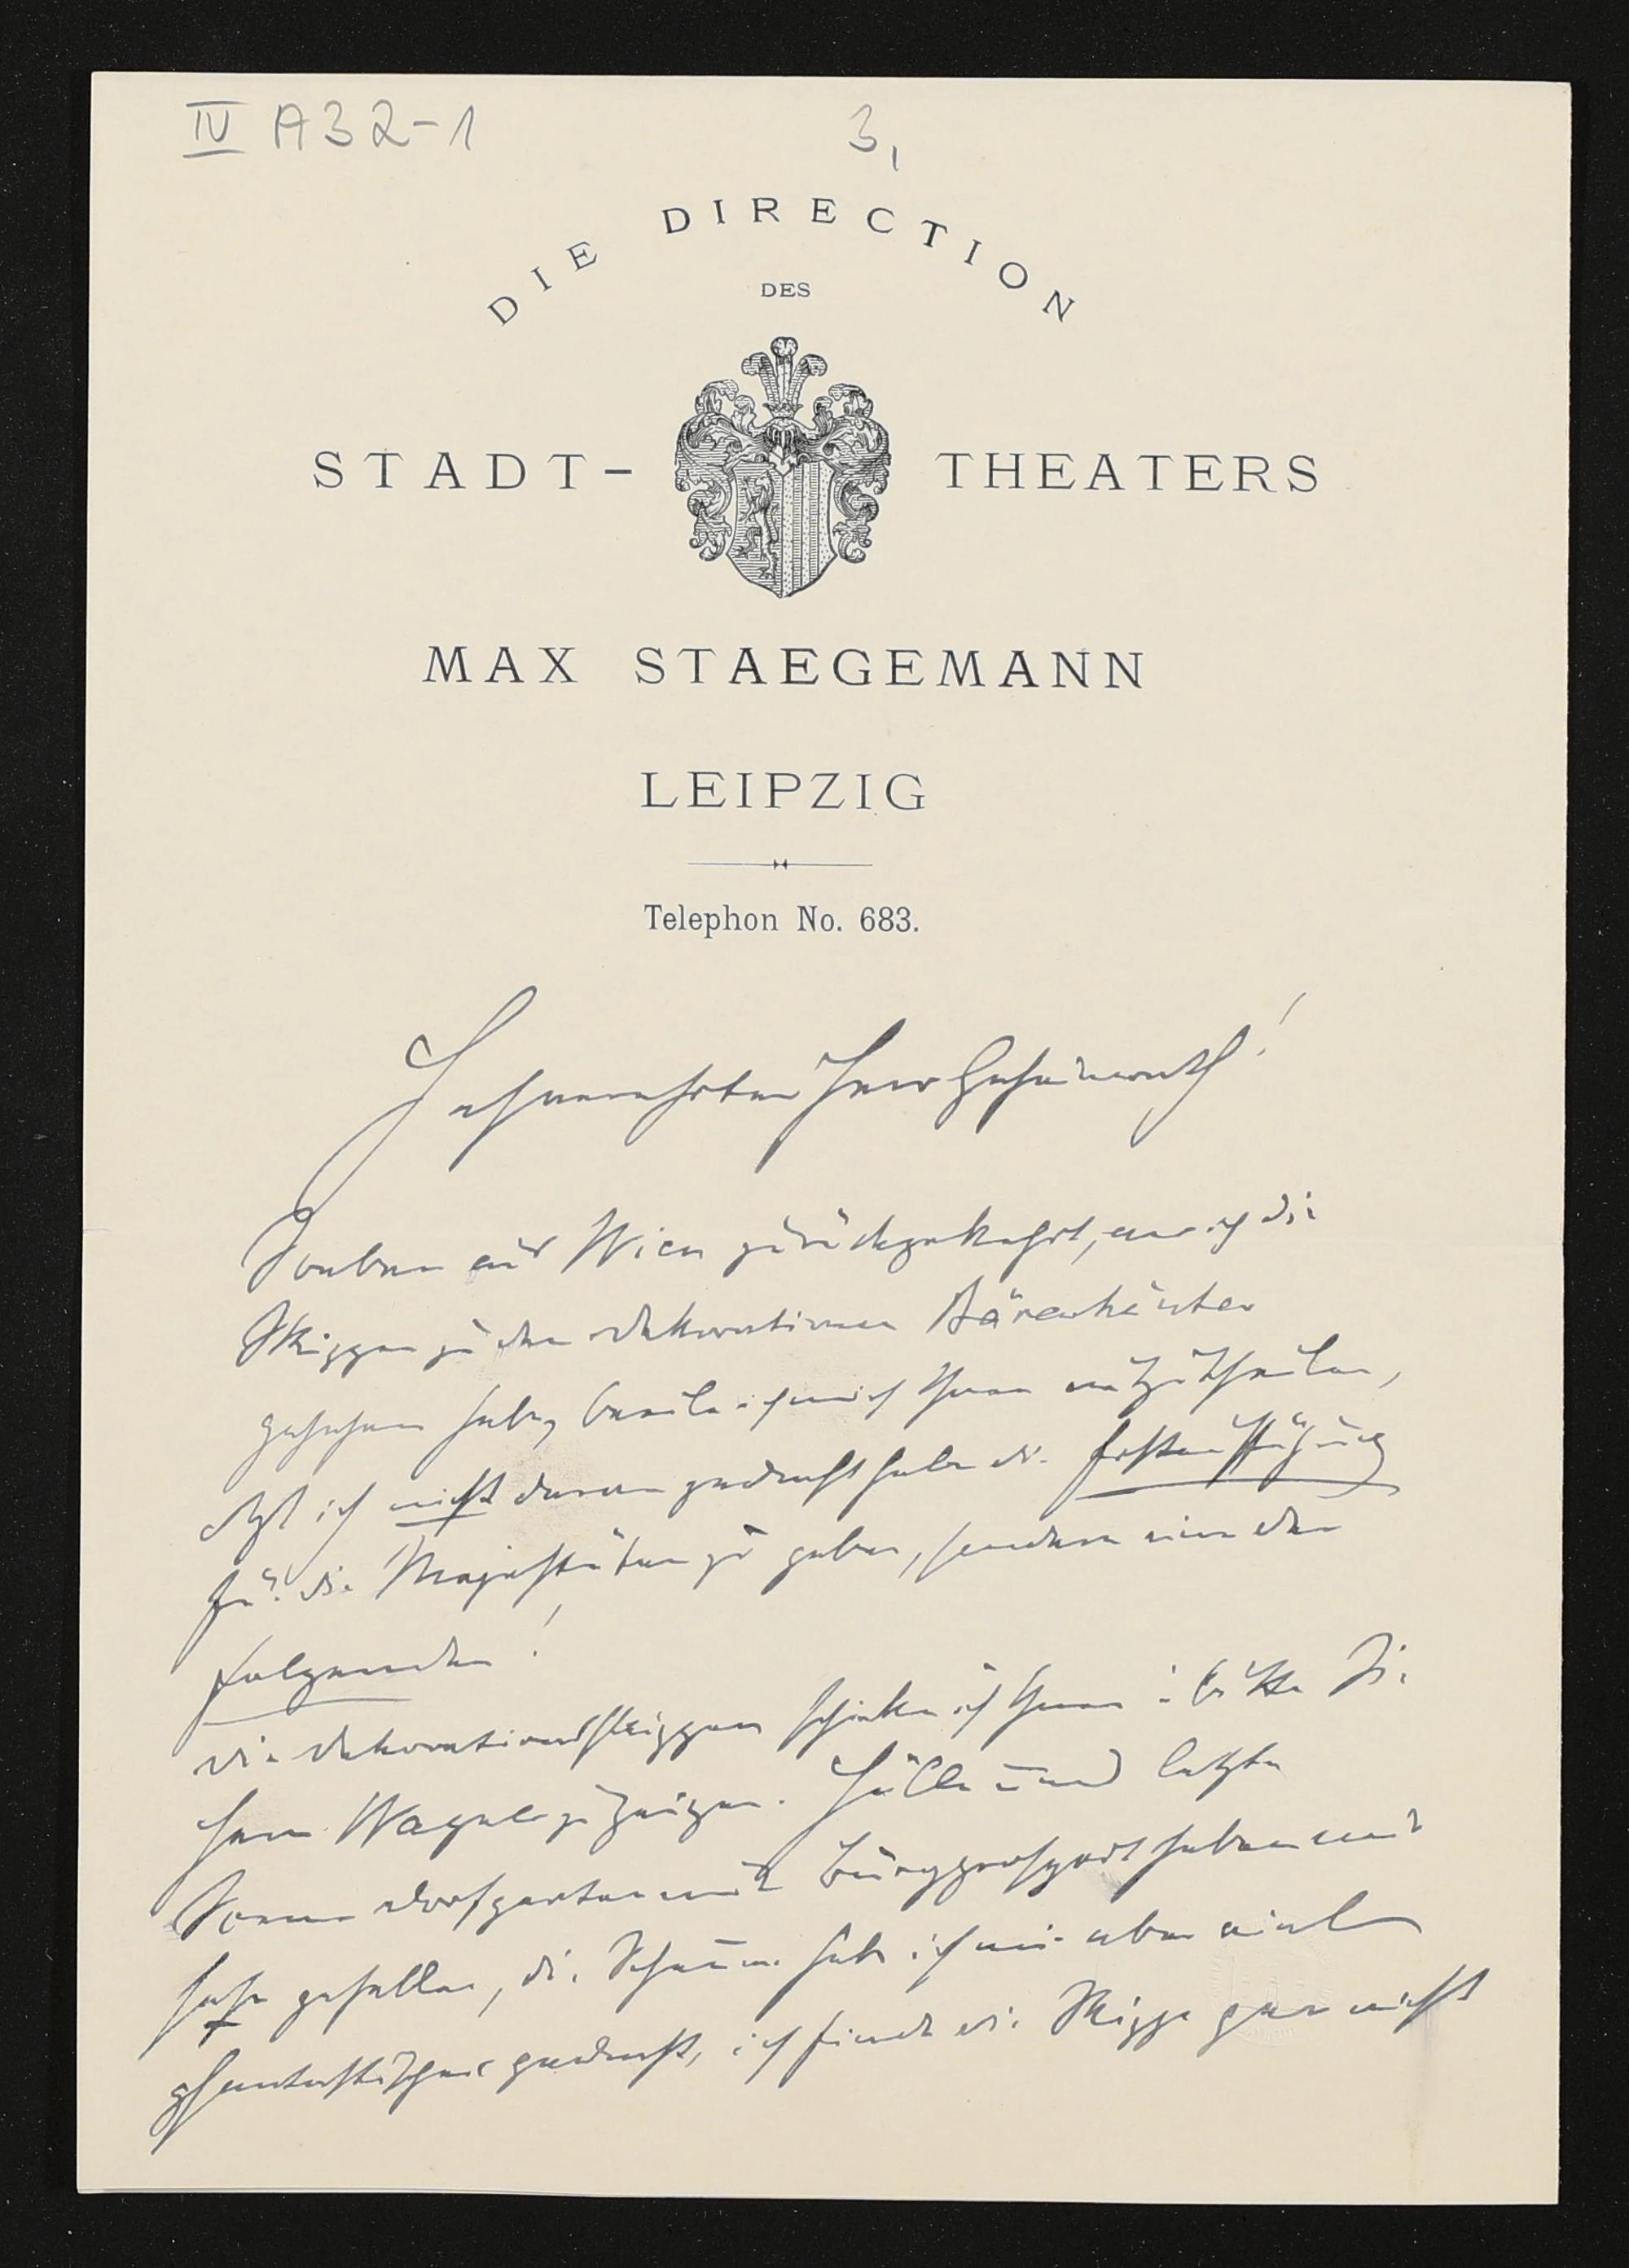 IV A32-1 3,
DIE DIRECTION
DES
STADT- THEATERS
MAX STAEGEMANN
LEIPZIG
Telephon No. 683.
Hochverehrter Herr Geheimrath!
Soeben aus Wien zurückgekehrt, wo ich die
Skizzen zu den Dekorationen Bärenhäuter
gesehen habe, beeile ich mich Ihnen mitzutheilen,
daß ich nicht daran gedacht habe die
für die Majestäten zu geben, sondern eine der
folgenden!
Die Dekorationsskizzen schicke ich Ihnen u bitte Sie
Herrn Wagner zu zeigen. Hölle und letzte
Scene Dorfgarten mit haben mir
sehr gefallen, die habe ich mir aber viel
phantastischer gedacht, ich finde die Skizze gar nicht